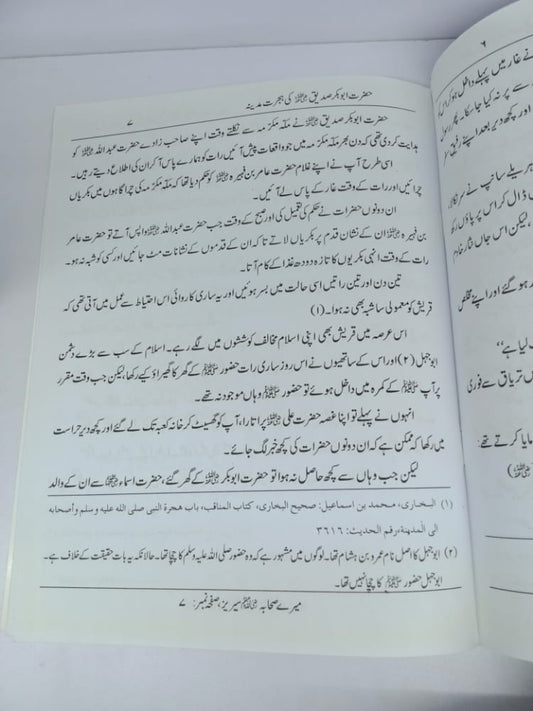 حضرت ابوبکر صدیق ﷜ کی ہجرت مدینہ
۷
حضرت ابوبکر صدیق ﷜ نے مکہ مکرمہ سے نکلتے وقت اپنے صاحب زادے حضرت عبداللہ ﷜ کو
ہدایت کر دی تھی کہ دن بھر مکہ مکرمہ میں جو واقعات پیش آئیں رات کو ہمارے پاس آ کر ان کی اطلاع دیتے رہیں۔
اسی طرح آپ نے اپنے غلام حضرت عامر بن فہیرہ ﷜ کو حکم دیا تھا کہ مکہ مکرمہ کی چراگاہوں میں بکریاں
چرائیں اور رات کے وقت غار کے پاس لے آئیں۔
ان دونوں حضرات نے حکم کی تعمیل کی اور صبح کے وقت جب حضرت عبداللہ ﷜ واپس آتے تو حضرت عامر
بن فہیرہ ﷜ ان کے نشان قدم پر بکریاں لاتے تاکہ ان کے قدموں کے نشانات مٹ جائیں اور کسی کو شبہ نہ ہو۔
رات کے وقت انہی بکریوں کا تازہ دودھ غذا کے کام آتا۔
تین دن اور تین راتیں اسی حالت میں بسر ہوئیں اور یہ ساری کاروائی اس احتیاط سے عمل میں آتی تھی کہ
قریش کو معمولی سا شبہ بھی نہ ہوا۔ (۱)
اس عرصہ میں قریش بھی اپنی اسلام مخالف کوششوں میں لگے رہے۔ اسلام کے سب سے بڑے دشمن
ابوجہل (۲) اور اس کے ساتھیوں نے اس روز ساری رات حضور ﷺ کے گھر کا گھیراؤ کیے رکھا، لیکن جب وقت مقرر
پر آپ ﷺ کے کمرہ میں داخل ہوئے تو حضور ﷺ وہاں موجود نہ تھے۔
انہوں نے پہلے تو اپنا غصہ حضرت علی ﷜ پر اتارا، آپ کو گھسیٹ کر خانہ کعبہ تک لے گئے اور کچھ دیر حراست
میں رکھا کہ ممکن ہے کہ ان دونوں حضرات کی کچھ خبر لگ جائے۔
لیکن جب وہاں سے کچھ حاصل نہ ہوا تو حضرت ابوبکر ﷜ کے گھر گئے، حضرت اسماء ﷞ سے ان کے والد
(۱) البخاری، محمد بن اسماعیل: صحیح البخاری، کتاب المناقب، باب هجرة النبی صلی الله علیه وسلم وأصحابه
الی المدینة، رقم الحدیث: ۳۶۱۶
(۲) ابوجہل کا اصل نام عمرو بن ہشام تھا۔ لوگوں میں مشہور ہے کہ وہ حضور صلی اللہ علیہ وسلم کا چچا تھا۔ حالانکہ یہ بات حقیقت کے خلاف ہے۔
ابوجہل حضور ﷺ کا چچا نہیں تھا۔
میرے صحابہ ﷢ سیریز، صفحہ نمبر: ۷
۶
نے غار میں پہلے داخل ہو کر اس
سے پر نہ کیا جا سکا۔ پھر رسول
اور کچھ دیر بعد اپنے رفیق
ہریلے سانپ نے سر نکالا
ڈال کر اس پر پاؤں رکھ
، لیکن اس جاں نثار خادم
ہو گئے اور اپنے مخلص
لیا ہے''
تریاق سے فوری
مایا کرتے تھے: